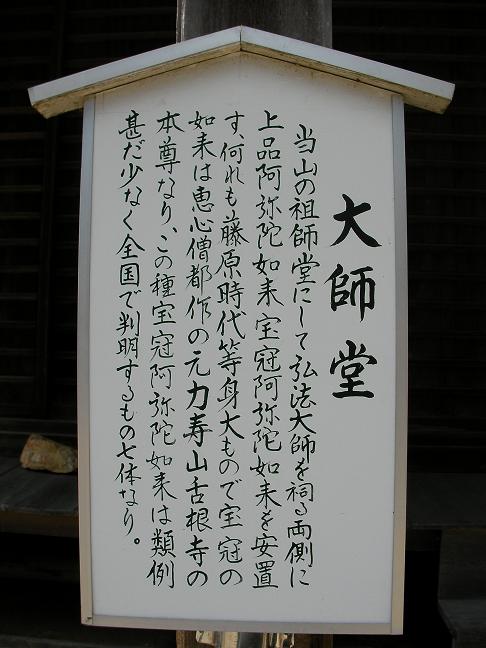 大師堂
当山の祖師堂にして弘法大師を祠る両側に
上品阿弥陀如来宝冠阿弥陀如来を安置
す、何れも藤原時代等身大もので宝冠の
如来は恵心僧都作の元力寿山舌根寺の
本尊なり、この種宝冠阿弥陀如来は類例
甚だ少なく全国で判明するもの七体なり。